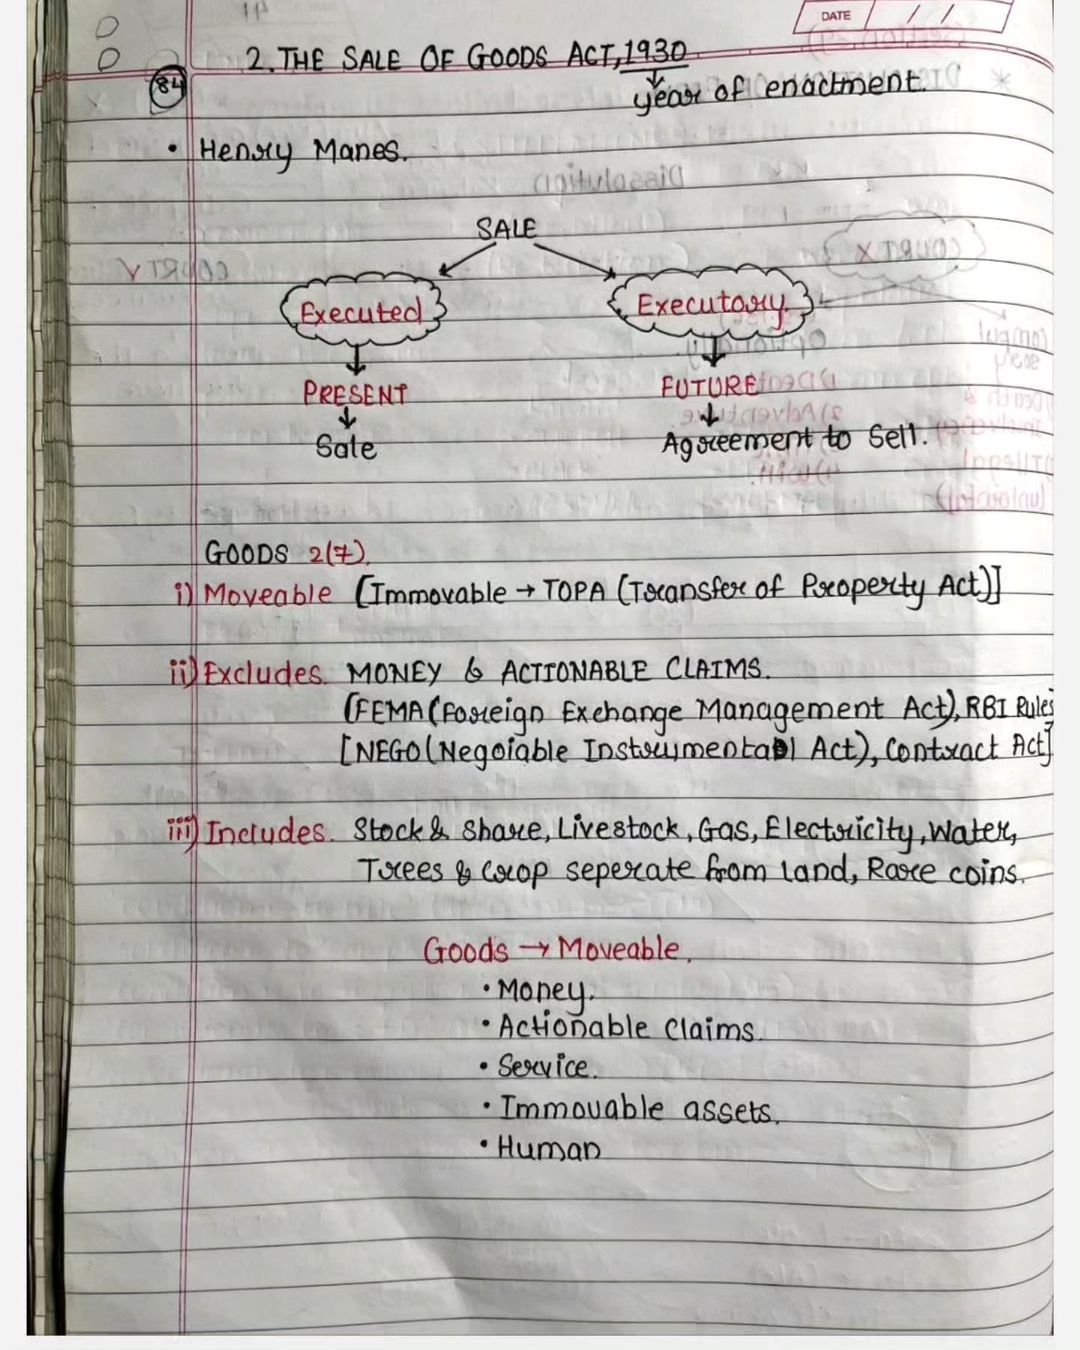 DATE / /
2. THE SALE OF GOODS ACT, 1930
84
year of enactment.
• Henry Manes.
SALE
Executed Executory.
PRESENT FUTURE
Sale Agreement to Sell.
GOODS 2(7).
i) Moveable [Immovable → TOPA (Transfer of Property Act)]
ii) Excludes. MONEY & ACTIONABLE CLAIMS.
[FEMA (Foreign Exchange Management Act), RBI Rules]
[NEGO (Negoiable Instrumental Act), Contract Act]
iii) Includes. Stock & Share, Livestock, Gas, Electricity, Water,
Trees & Crop seperate from land, Rare coins.
Goods → Moveable.
• Money.
• Actionable Claims.
• Service.
• Immovable assets.
• Human